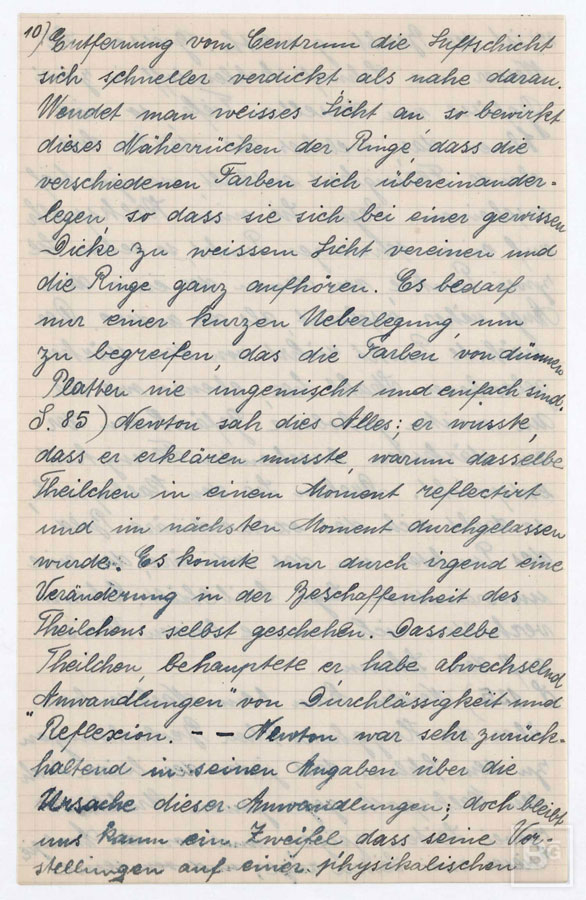 10) Entfernung vom Centrum die Luftschicht
sich schneller verdickt als nahe daran.
Wendet man weisses Licht an, so bewirkt
dieses Näherrücken der Ringe, dass die
verschiedenen Farben sich übereinander-
legen, so dass sie sich bei einer gewissen
Dicke zu weissem Licht vereinen und
die Ringe ganz aufhören. Es bedarf
nur einer kurzen Ueberlegung, um
zu begreifen, das die Farben von dünnen
Platten nie ungemischt und einfach sind.
S. 85) Newton sah dies Alles; er wusste,
dass er erklären musste, warum dasselbe
Theilchen in einem Moment reflectirt
und im nächsten Moment durchgelassen
wurde. Es konnte nur durch irgend eine
Veränderung in der Beschaffenheit des
Theilchens selbst geschehen. Dasselbe
Theilchen, behauptete er, habe abwechselnd
"Anwandlungen" von Durchlässigkeit und
Reflexion. — — Newton war sehr zurück-
haltend in seinen Angaben über die
Ursache dieser Anwandlungen; doch bleibt
uns kaum ein Zweifel dass seine Vor-
stellungen auf einer physikalischen